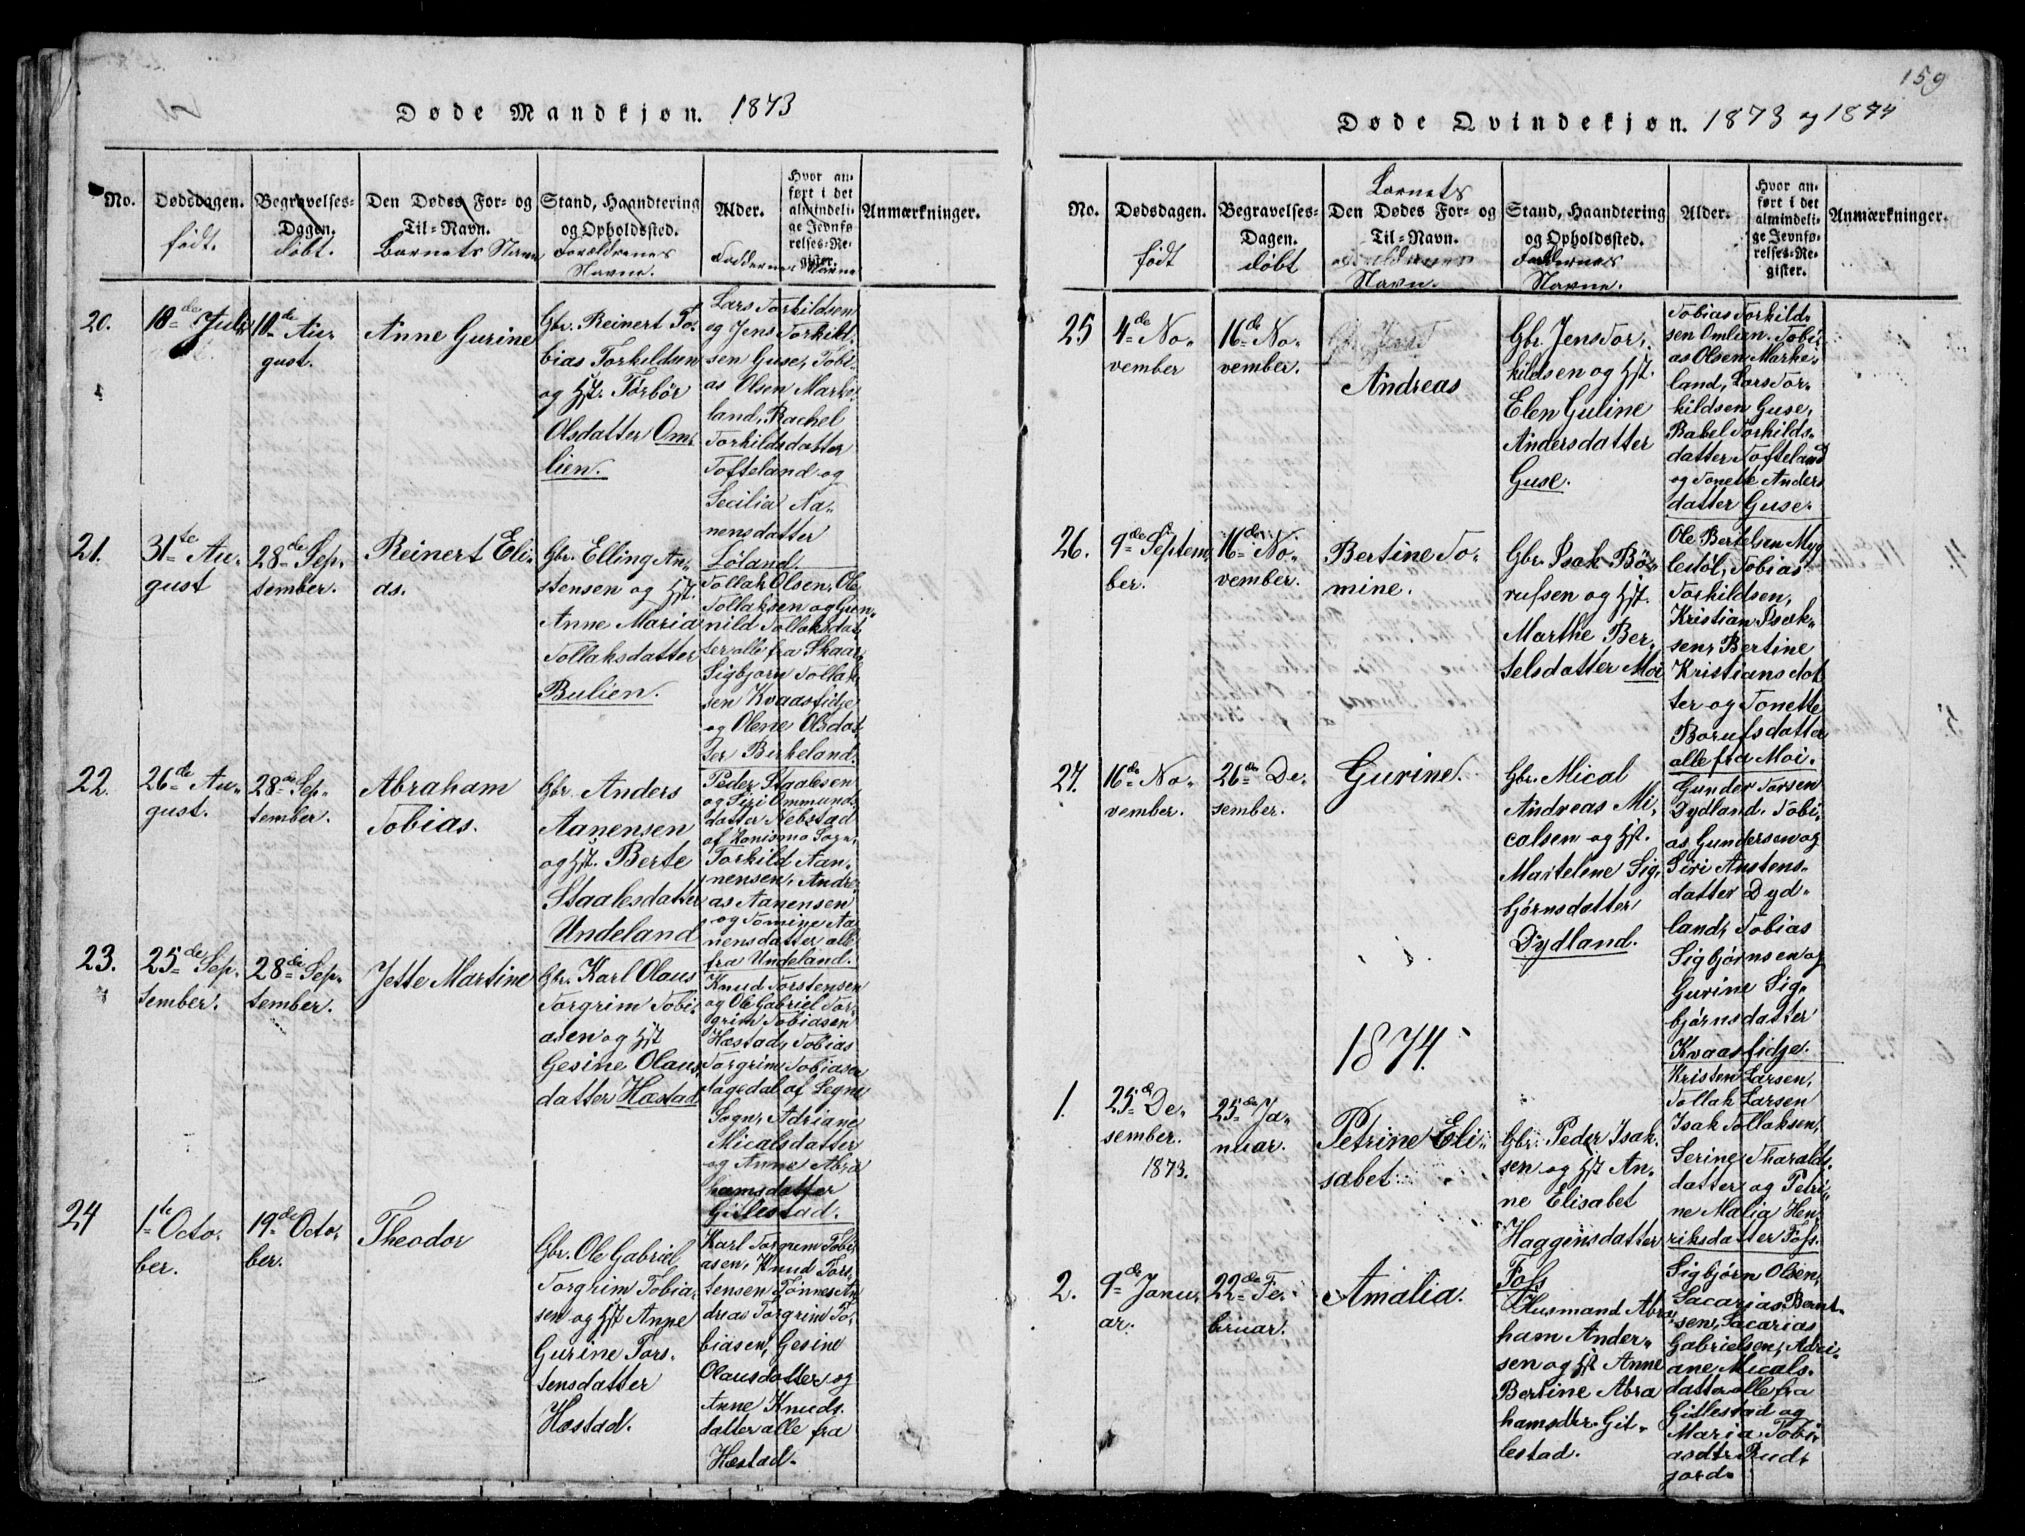 159
Døde Mandkjøn. 1873
No.
Dødsdagen.
født.
Begravelses-
Dagen.
døbt.
Den Dødes For- og
Til-Navn.
Barnets Navn
Stand, Haandtering
og Opholdssted.
Forældrenes
Navne.
Alder.
Faddernes Navne
Hvor an-
ført i det
almindeli-
ge Jevnfø-
relses-Re-
gister.
Anmærkninger.
20.
18de Juli
10de Au-
gust.
Anne Gurine
Gbr. Reinert To-
bias Torkildsen
og Hst. Torbør
Olsdatter Om-
lien.
Lars Torkildsen
og Jens Torkild-
sen Guse, Tobi-
as Olsen Marke-
land, Rachel
Torkildsdatter
Tofteland og
Secilia Aa-
nensdatter
Løland.
21.
31te Au-
gust
28de Sep-
tember.
Reinert Eli-
as.
Gbr. Elling An-
stensen og Hst.
Anne Maria
Tollaksdatter
Bulien.
Tollak Olsen, Ole
Tollaksen og Gun-
nild Tollaksdat-
ter alle fra Skaar,
Sigbjørn Tollak-
sen Kvaasfidje
og Olene Olsdat-
ter Birkeland.
22.
26de Au-
gust.
28de Sep-
tember.
Abraham
Tobias.
Gbr. Anders
Aanensen
og Hst. Berte
Staalesdatter
Undeland
Peder Staalesen
og Siri Ommunds-
datter Nebstad
af Zonismo Sogn,
Torkild Aan-
nensen, Andre-
as Aanensen
og Tomine Aa-
nensdatter alle
fra Undeland.
23.
25de Sep-
tember.
28de Sep-
tember.
Jette Martine
Gbr. Karl Olaus
Torgrim Tobi-
asen og Hst
Gesine Olaus-
datter Hæstad
Knud Torstensen
og Ole Gabriel Tor-
grim Tobiasen
Hæstad, Tobias
Torgrim Tobiasen
af Segne
Sogn, Adriane
Micalsdatter
og Anne Abra
hamsdatter
Gitlestad.
24
1te Octo-
ber.
19de Octo-
ber.
Theodor
Gbr. Ole Gabriel
Torgrim Tobia-
sen og Hst Anne
Gurine Tors-
tensdatter
Hæstad.
Karl Torgrim Tobi-
asen, Knud Tors-
tensen Tønnes An
dreas Torgrim To-
biasen, Gesine
Olausdatter og
Anne Knuds-
datter alle fra
Hæstad.
Døde Qvindekjøn. 1873 og 1874
No.
Dødsdagen.
født
Begravelses-
Dagen.
døbt
Barnets
Den Dødes For- og
Til-Navn.
Navn.
Stand, Haandtering
og Opholdssted.
Navne.
Alder.
Hvor an-
ført i det
almindeli-
ge Jevnfø-
relses-Re-
gister.
Anmærkninger.
25
4de No-
vember
16de No-
vember.
Andreas
Gbr. Jens Tor-
kildsen og Hst.
Elen Guline
Andersdatter
Guse.
Tobias Torkild-
sen Omlien, Tobi-
as Olsen Marke-
land, Lars Tor-
kildsen Guse,
Rakel Torkilds-
datter Tofteland
og Tonette Anders
datter Guse.
26.
9de Septem-
ber.
16de No-
vember.
Bertine To-
mine.
Gbr. Isak Bø-
rufsen og Hst.
Marthe Ber-
telsdatter Moi
Ole Bertelsen Myg-
lestøl, Tobias
Torkildsen,
Kristian Isak-
sen, Bertine
Kristiansdat
ter og Tonette
Børufsdatter
alle fra Moi.
27.
16de No-
vember.
26de De-
sember.
Gurine.
Gbr. Mical
Andreas Mi-
calsen og Hst.
Martelene Sig-
bjørnsdatter
Dydland.
Gunder Torsen
Dydland, Tobi-
as Gundersen og
Siri Anstens-
datter Dyd-
land, Tobias
Sigbjørnsen og
Gurine Sig-
bjørnsdatter
Kvaasfidje.
1874.
1.
25de De-
sember.
1873.
25de Ja-
nuar.
Petrine Eli-
sabet
Gbr. Peder Isak-
sen og Hst An-
ne Elisabet
Haagensdatter
Foss
Kristen Larsen,
Tollak Larsen
Isak Tollaksen,
Serine Tharalds-
datter og Petri-
ne Malia Hen-
riksdatter Foss.
2.
9de Janu-
ar.
22de Fe-
bruar.
Amalia.
Husmand Abra-
ham Ander-
sen og Hst Anne
Bertine Abra
hamsdtr. Git-
lestad.
Sigbjørn Olsen,
Sacarias Bernt-
sen, Sacarias
Gabrielsen, Adri-
ane Micals-
datter alle fra
Gitlestad og
Maria Tobi-
asdtr Rud-
jord.